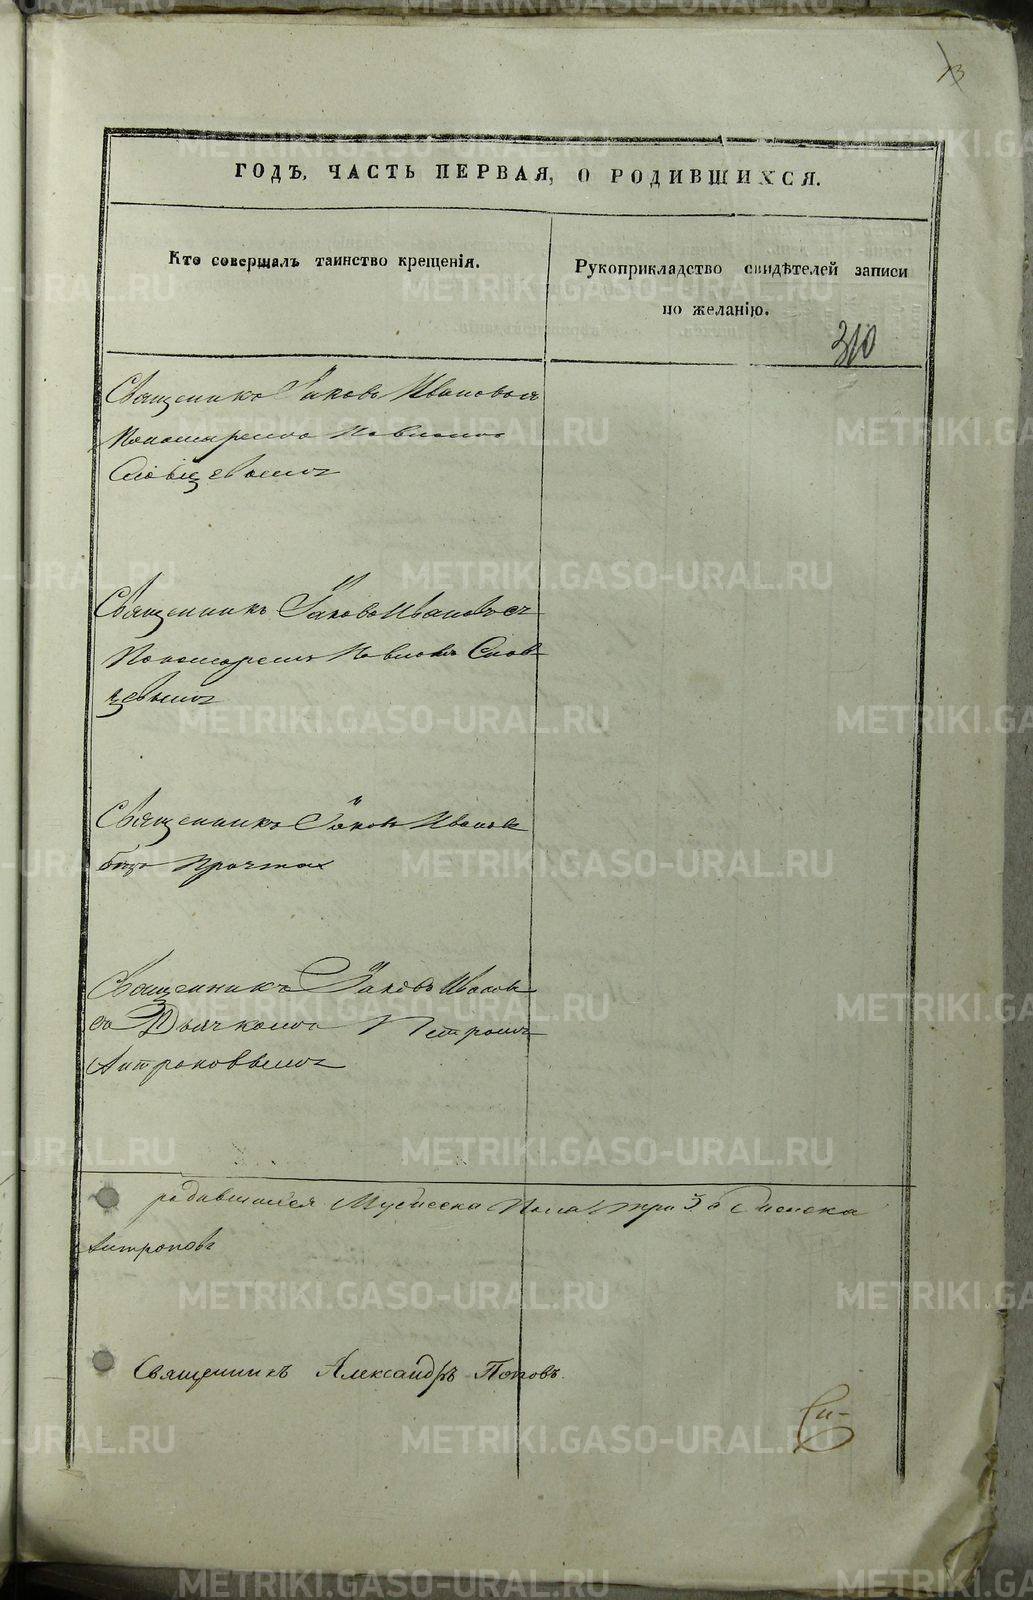 13
ГОДЪ, ЧАСТЬ ПЕРВАЯ, О РОДИВШИХСЯ.
Кто совершалъ таинство крещенія.
Рукоприкладство свидѣтелей записи
по желанію.
310
Священикъ Іаковъ Ивановъ съ
Пономаремъ Павломъ
Словцевымъ
Священникъ Іаковъ Ивановъ съ
Пономаремъ Павломъ Слов
цевымъ
Священникъ Іаковъ Ивановъ
безъ Причта
Священникъ Іаковъ Иванов
съ Дьячкомъ Петромъ
Антроповымъ
родившимся Мужеска Пола три Женска
Антроповъ
Священникъ Александръ Поповъ.
METRIKI.GASO-URAL.RU